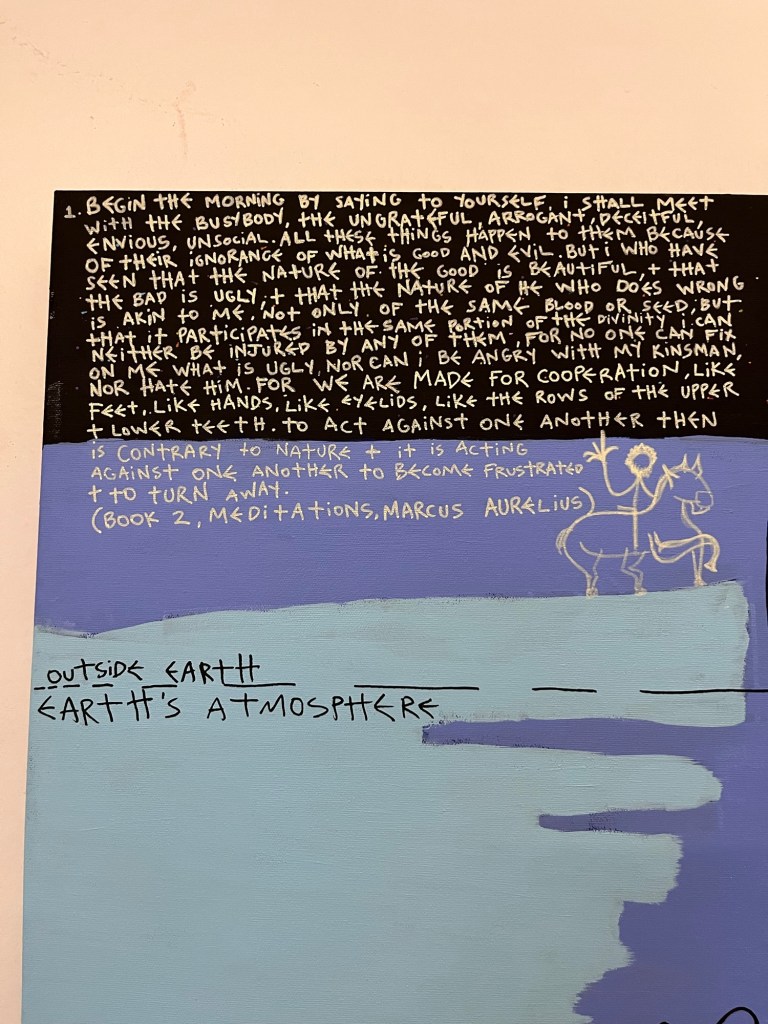 1. BEGIN THE MORNING BY SAYING TO YOURSELF, i SHALL MEET
WITH THE BUSYBODY, THE UNGRATEFUL, ARROGANT, DECEITFUL,
ENVIOUS, UNSOCIAL. ALL THESE THINGS HAPPEN TO THEM BECAUSE
OF THEIR IGNORANCE OF WHAT IS GOOD AND EVIL. BUT i WHO HAVE
SEEN THAT THE NATURE OF THE GOOD IS BEAUTIFUL, + THAT
THE BAD IS UGLY, + THAT THE NATURE OF HE WHO DOES WRONG
IS AKIN TO ME, NOT ONLY OF THE SAME BLOOD OR SEED, BUT
THAT IT PARTICIPATES IN THE SAME PORTION OF THE DIVINITY, i CAN
NEITHER BE INJURED BY ANY OF THEM, FOR NO ONE CAN FIX
ON ME WHAT IS UGLY, NOR CAN i BE ANGRY WITH MY KINSMAN,
NOR HATE HIM. FOR WE ARE MADE FOR COOPERATION, LIKE
FEET, LIKE HANDS, LIKE EYELIDS, LIKE THE ROWS OF THE UPPER
+ LOWER TEETH. TO ACT AGAINST ONE ANOTHER THEN
IS CONTRARY TO NATURE + IT IS ACTING
AGAINST ONE ANOTHER TO BECOME FRUSTRATED
+ TO TURN AWAY.
(BOOK 2, MEDITATIONS, MARCUS AURELIUS)
OUTSIDE EARTH
EARTH'S ATMOSPHERE